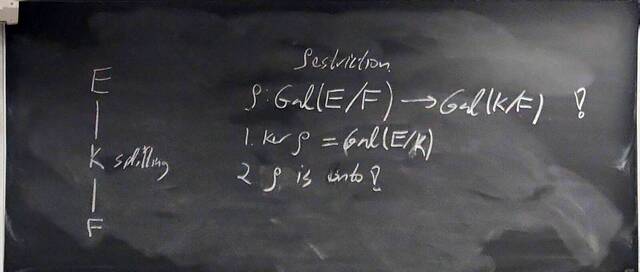 E
K splitting
F
Restriction
ρ: Gal(E/F) → Gal(K/F) !
1. Ker ρ = Gal(E/K)
2 ρ is onto!